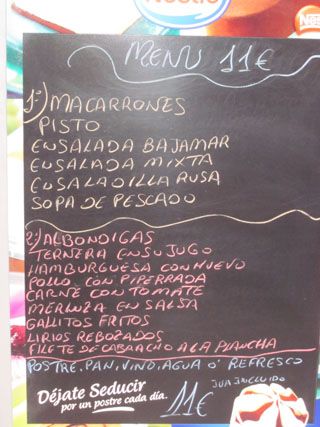 Nestlé
Nestlé
MENU 11€
1º) MACARRONES
PISTO
ENSALADA BAJAMAR
ENSALADA MIXTA
ENSALADILLA RUSA
SOPA DE PESCADO
2º) ALBONDIGAS
TERNERA EN SU JUGO
HAMBURGUESA CON HUEVO
POLLO CON PIPERRADA
CARNE CON TOMATE
MERLUZA EN SALSA
GALLITOS FRITOS
LIRIOS REBOZADOS
FILETE DE CABRACHO A LA PLANCHA
POSTRE, PAN, VINO, AGUA O' REFRESCO
IVA INCLUIDO
Déjate Seducir
por un postre cada día.
11€